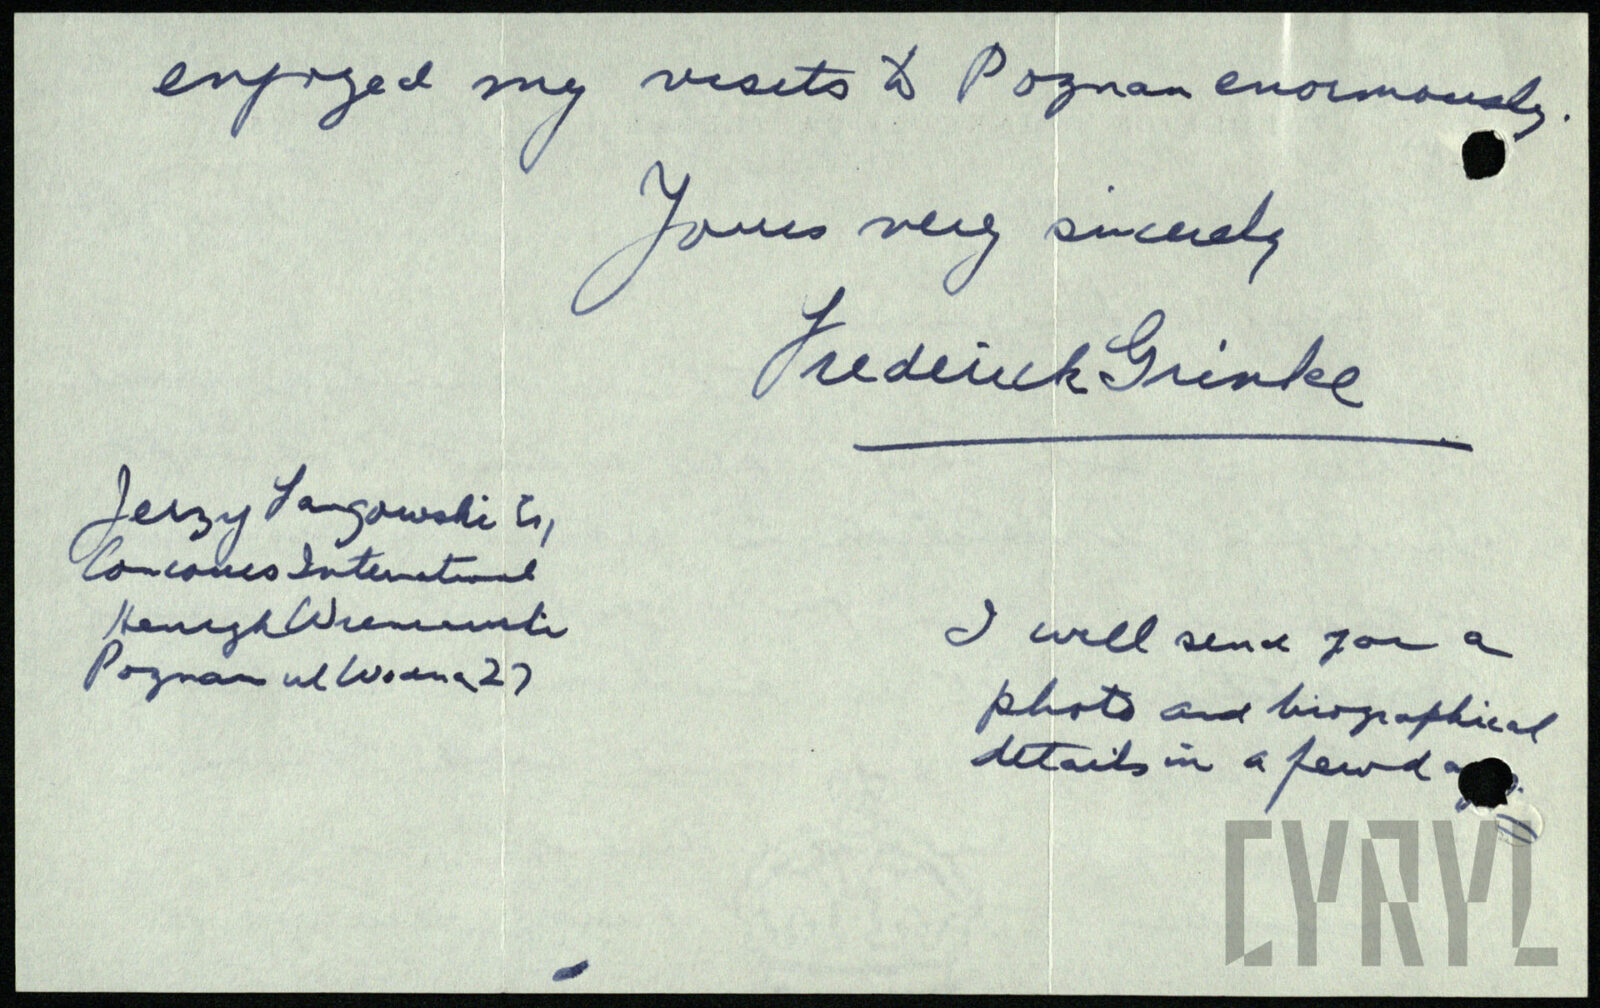 enjoyed my visits to Poznan enormously.
Yours very sincerely
Frederick Grinke
Jerzy Jangowski Es,
Concours International
Henryk Wieniawski
Poznan ul Wodna 27
I will send you a
photo and biographical
details in a few days.
CYRYL